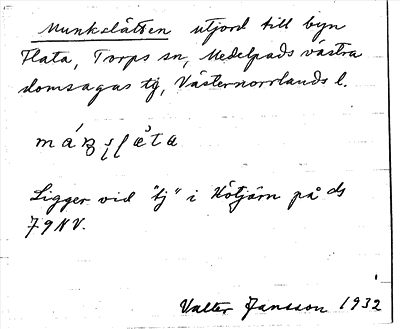 Munkslåtten utjord till byn
Flata, Torps sn, Medelpads västra
domsagas tg, Västernorrlands l.
Ligger vid "tj" i Kötjärn på ds
79 NV.
Valter Jansson 1932